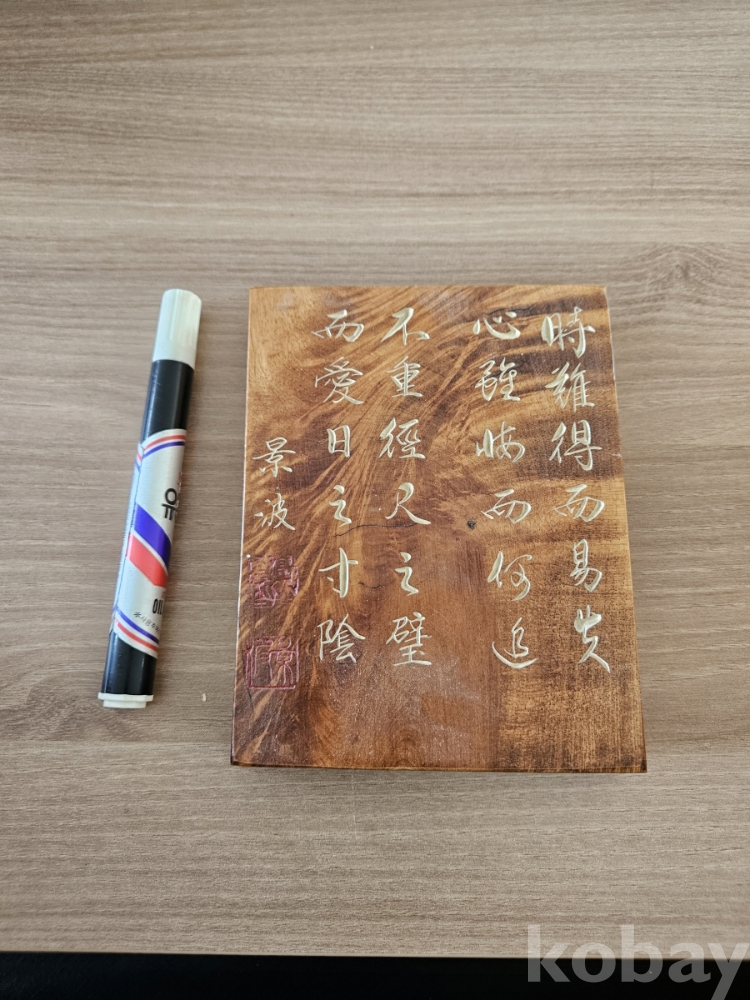 時難得而易失
心雖悔而何追
不重徑尺之璧
而愛日之寸陰
景波
유
OIL
kobay